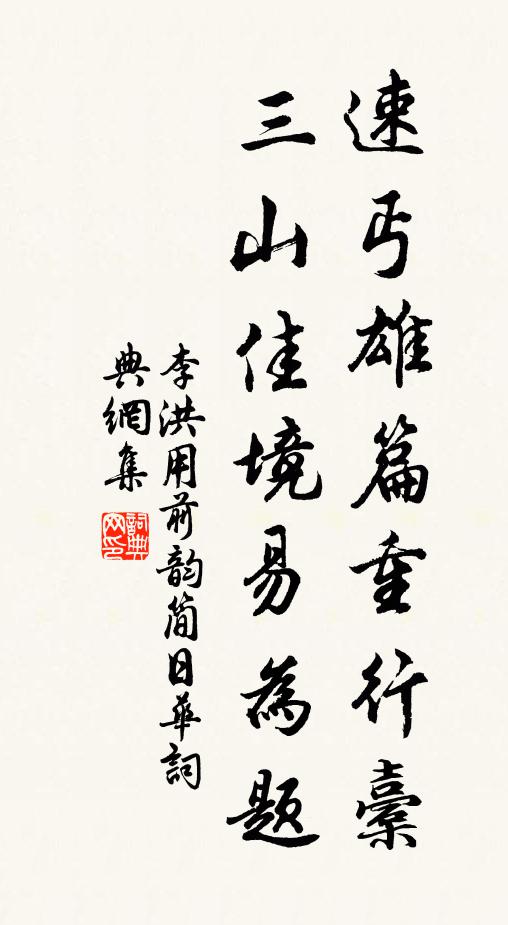 速丐雄篇重行橐
三山佳境易為題
李洪用前韵简日華詞
典網集
詞典網印